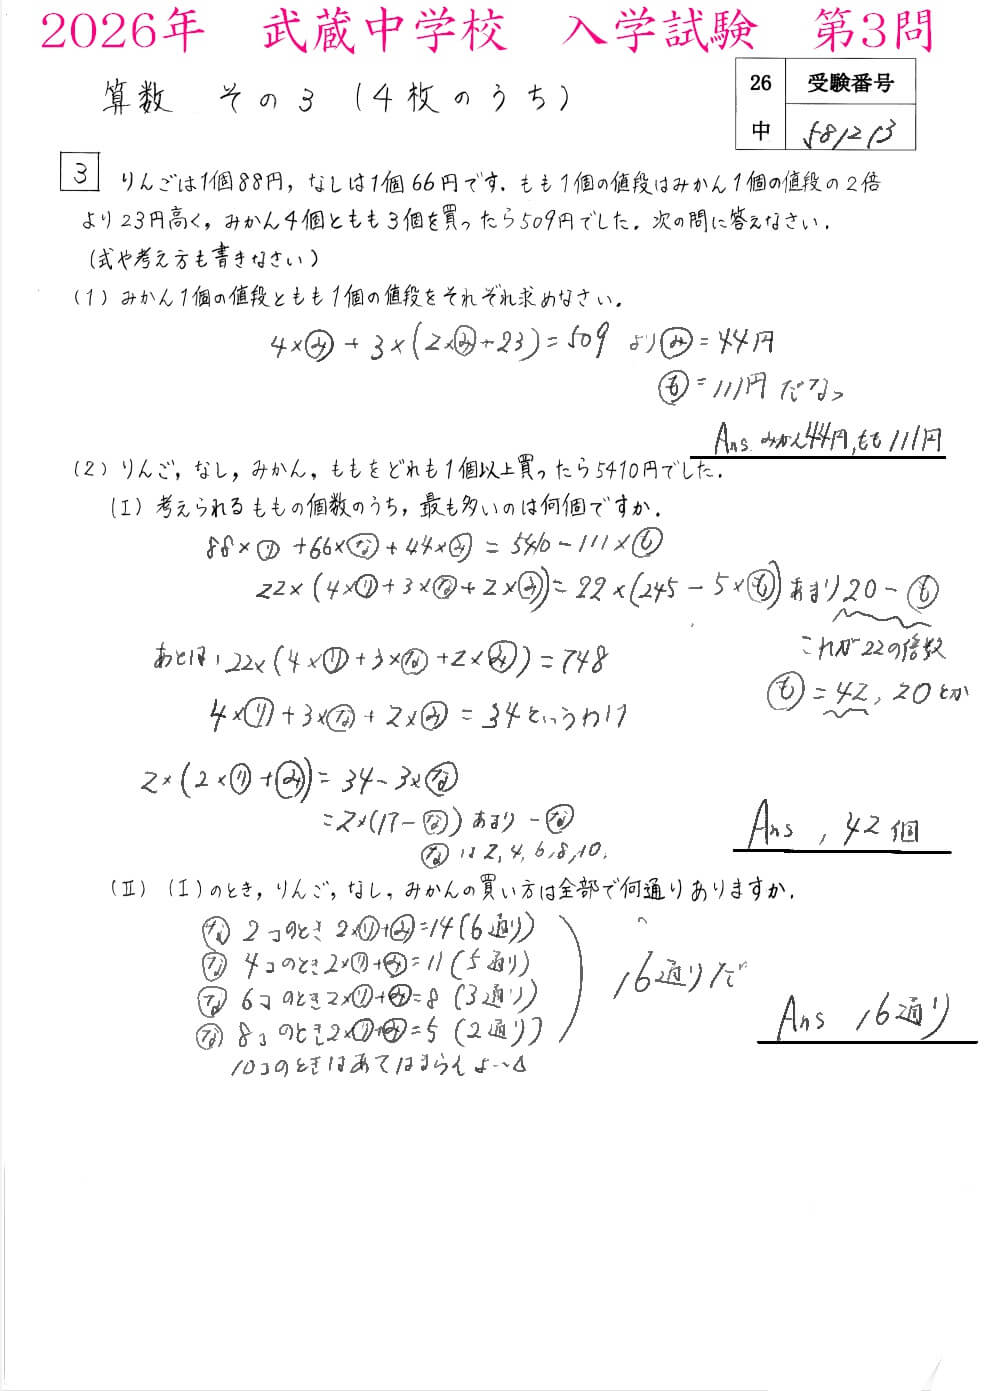 2026年 武蔵中学校 入学試験 第3問
算数 その3 (4枚のうち)
26 受験番号
中 581213
3 りんごは1個88円, なしは1個66円です. もも1個の値段はみかん1個の値段の2倍
より23円高く, みかん4個ともも3個を買ったら509円でした. 次の問に答えなさい.
(式や考え方も書きなさい)
(1) みかん1個の値段ともも1個の値段をそれぞれ求めなさい.
4×㋯ + 3×(2×㋯+23) = 509 より ㋯ = 44円
㋲ = 111円 だなっ
Ans. みかん44円, もも111円
(2) りんご, なし, みかん, ももをどれも1個以上買ったら5410円でした.
(Ⅰ) 考えられるももの個数のうち, 最も多いのは何個ですか.
88×㋷ + 66×㋤ + 44×㋯ = 5410 - 111×㋲
22×(4×㋷+3×㋤+2×㋯) = 22×(245 - 5×㋲) あまり 20 - ㋲
これが22の倍数
あとは, 22×(4×㋷+3×㋤+2×㋯) = 748
㋲ = 42, 20とか
4×㋷+3×㋤+2×㋯ = 34というわけ
2×(2×㋷+㋯) = 34-3×㋤
= 2×(17-㋤) あまり -㋤
㋤ は 2, 4, 6, 8, 10.
Ans, 42個
(Ⅱ) (Ⅰ)のとき, りんご, なし, みかんの買い方は全部で何通りありますか.
㋤ 2コのとき 2×㋷+㋯=14 (6通り)
㋤ 4コのとき 2×㋷+㋯=11 (5通り)
㋤ 6コのとき 2×㋷+㋯=8 (3通り)
㋤ 8コのとき 2×㋷+㋯=5 (2通り)
16通りだ
10コのときはあてはまらんよ…Δ
Ans 16通り